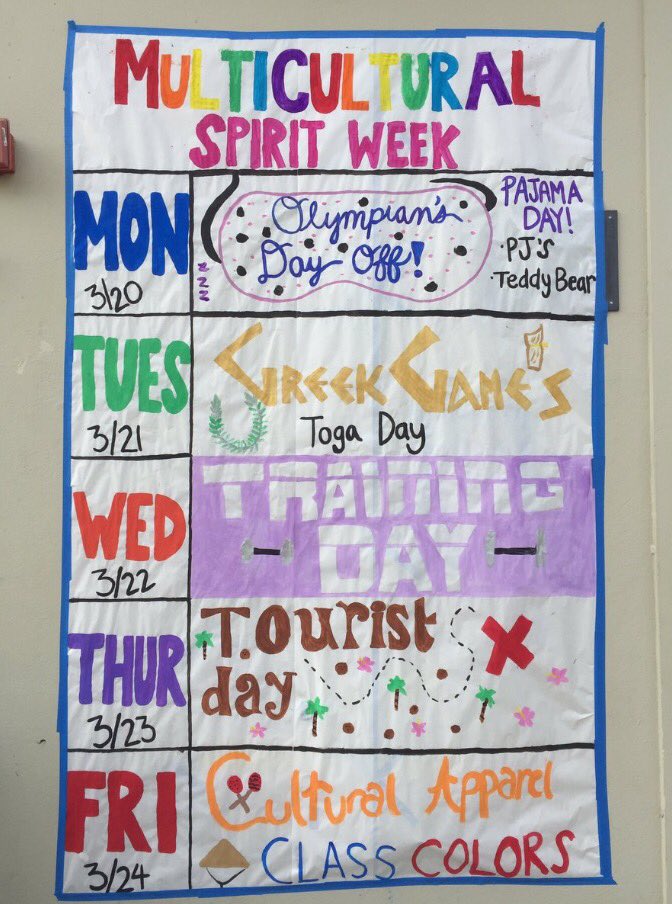 MULTICULTURAL
SPIRIT WEEK
MON
3/20
Olympian's
Day Off!
zzz
PAJAMA
DAY!
·PJ'S
·Teddy Bear
TUES
3/21
GREEK GAME'S
Toga Day
WED
3/22
TRAINING
DAY
THUR
3/23
T.ourist
day
FRI
3/24
Cultural Apparel
CLASS COLORS